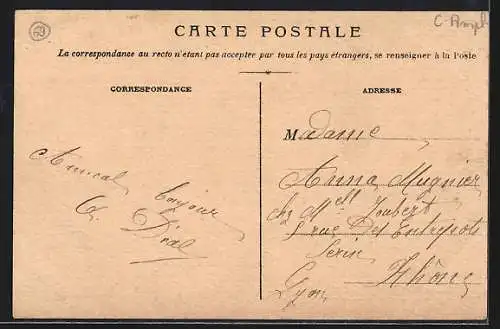 69
C-Amph
CARTE POSTALE
La correspondance au recto n'étant pas acceptée par tous les pays étrangers, se renseigner à la Poste
CORRESPONDANCE
Amical bonjour
ADRESSE
Madame
Anna Mugnier
chz Mell Joubert
5 rue des Entrepots
Serin
Lyon Rhône